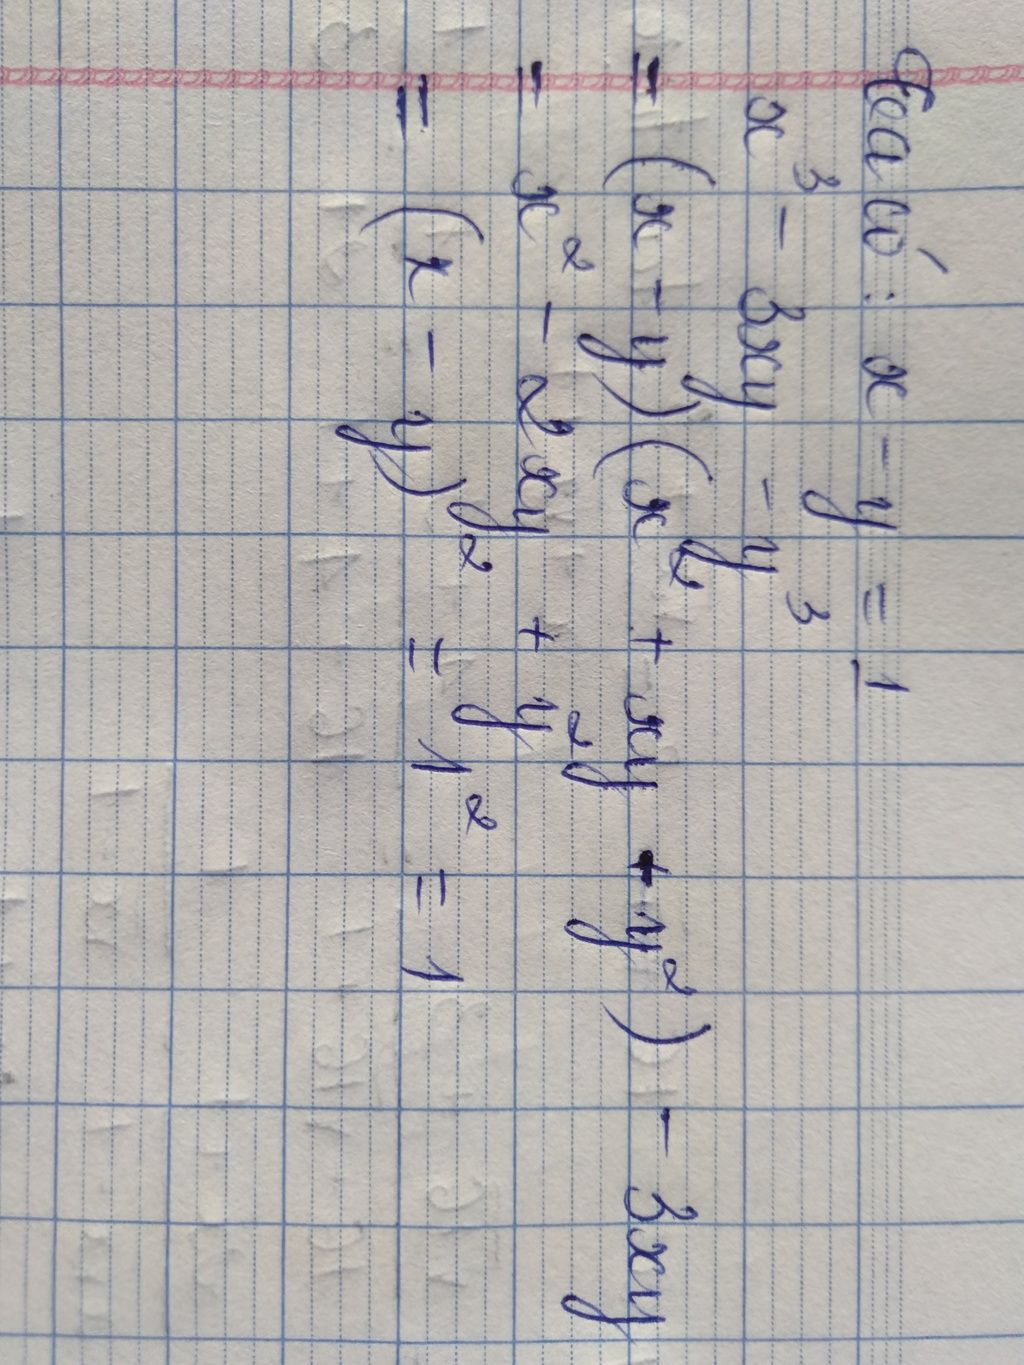 Ta có: x - y = 1
x³ - 3xy - y³
= (x - y)(x² + xy + y²) - 3xy
= x² - 2xy + y²
= (x - y)² = 1² = 1